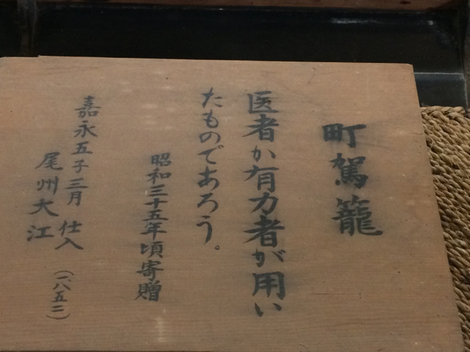 町駕籠
医者か有力者が用い
たものであろう。
昭和三十五年頃寄贈
嘉永五子三月 仕入
尾州大江
(一八五二)